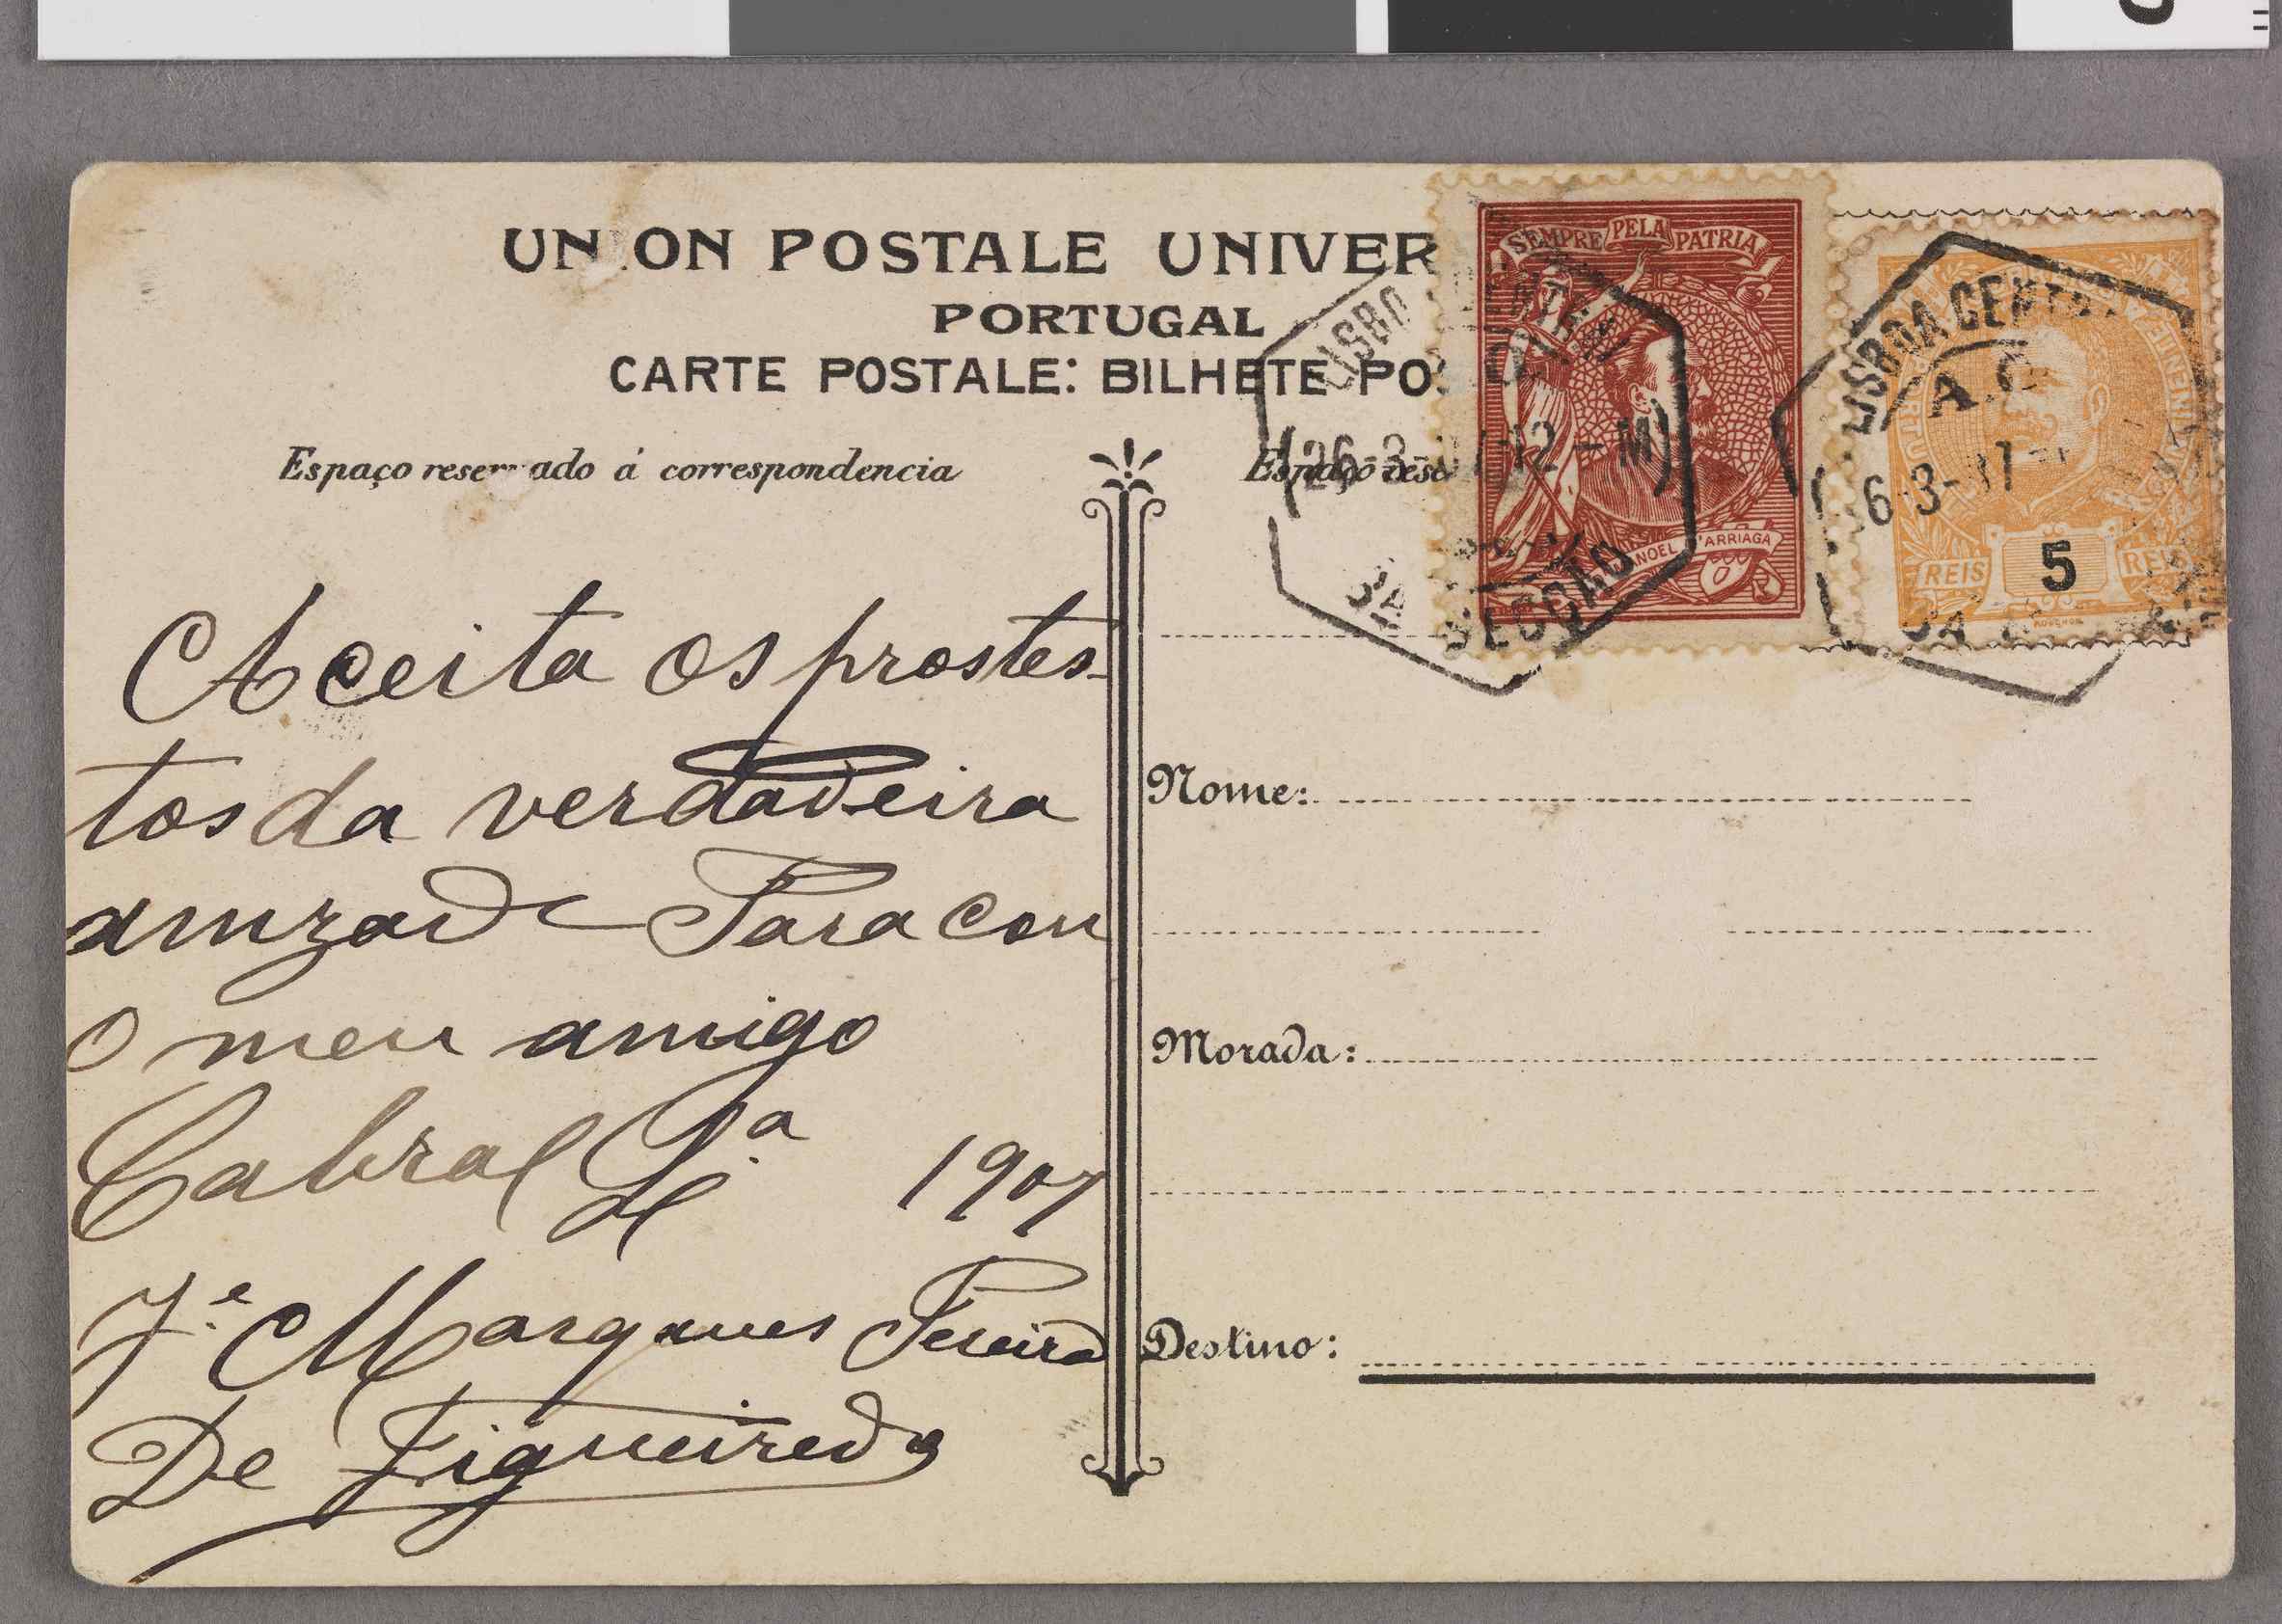 UN ON POSTALE UNIVER
PORTUGAL
CARTE POSTALE: BILHETE PO
Espaço reser ado á correspondencia
Espaço rese
SEMPRE PELA PATRIA
NOEL D'ARRIAGA
LISBOA CENTRAL
26-3- 12-M
3A SECÇÃO
LISBOA CENT
6-3-
REIS 5 REIS
Aceita os prostes-
tos da verdadeira
amzade Para con
o meu amigo
Cabral L.ª 1907
J.e Marques Pereira
De Figueiredo
Nome:
Morada:
Destino: